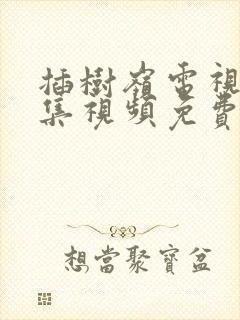 插樹嶺電視
集視頻免費
想當聚寶盆